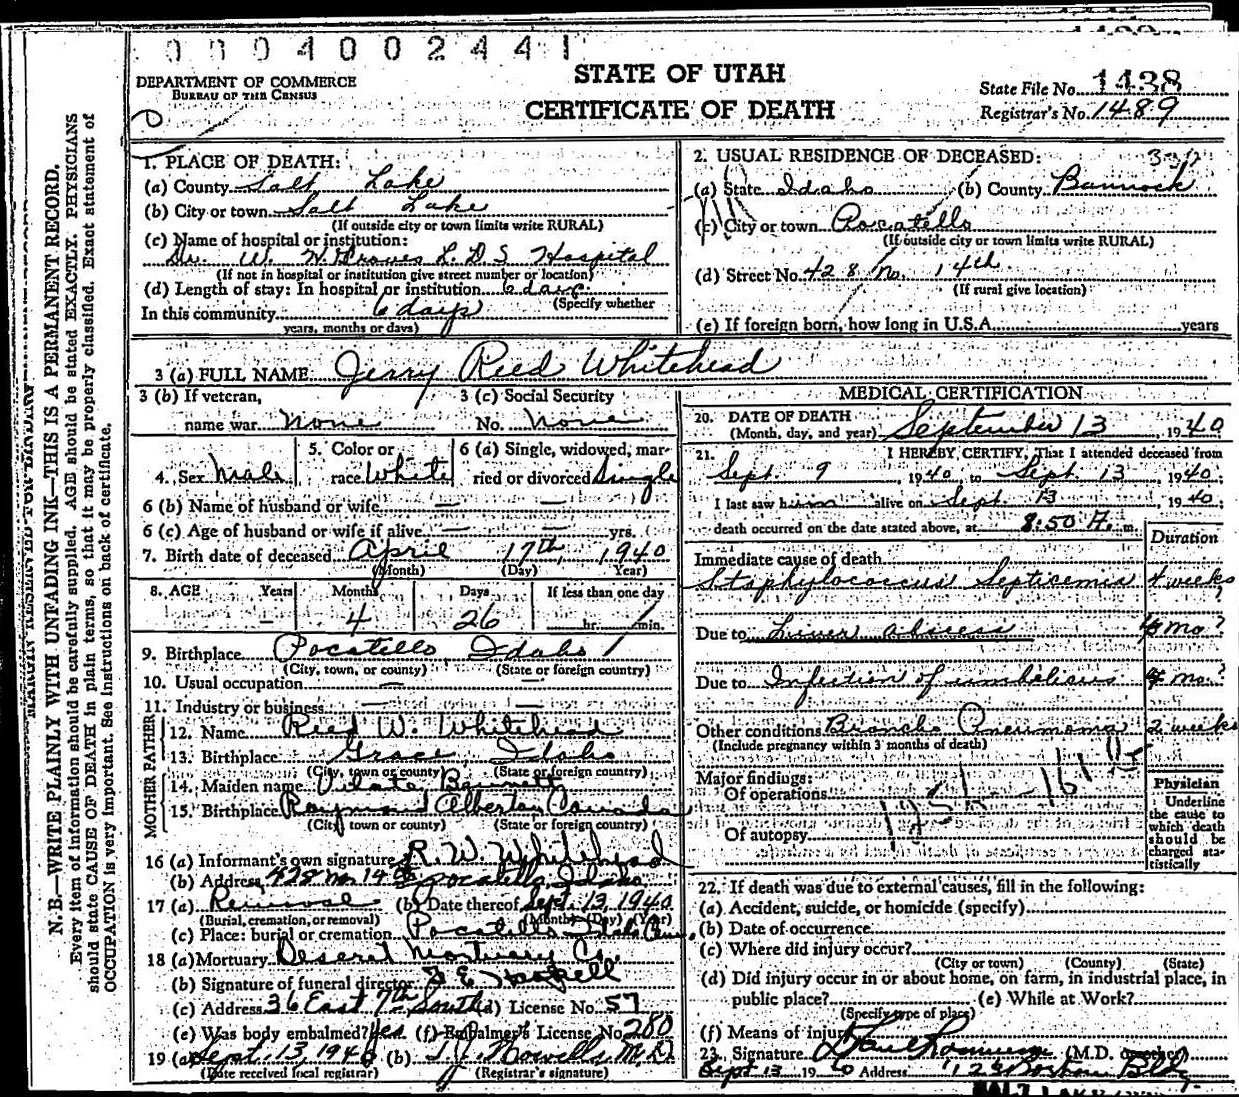 0004002441
DEPARTMENT OF COMMERCE
BUREAU OF THE CENSUS
STATE OF UTAH
CERTIFICATE OF DEATH
State File No. 1438
Registrar's No. 1489
1. PLACE OF DEATH:
(a) County Salt Lake
(b) City or town Salt Lake
(If outside city or town limits write RURAL)
(c) Name of hospital or institution:
Dr. W. H. Groves L. D. S. Hospital
(If not in hospital or institution give street number or location)
(d) Length of stay: In hospital or institution 6 days
(Specify whether
In this community 6 days
years, months or days)
2. USUAL RESIDENCE OF DECEASED:
(a) State Idaho (b) County Bannock
(c) City or town Pocatello
(If outside city or town limits write RURAL)
(d) Street No. 428 No. 14th
(If rural give location)
(e) If foreign born, how long in U.S.A. years
3 (a) FULL NAME Jerry Reed Whitehead
3 (b) If veteran,
name war None
3 (c) Social Security
No. None
4. Sex Male
5. Color or
race White
6 (a) Single, widowed, mar-
ried or divorced Single
6 (b) Name of husband or wife —
6 (c) Age of husband or wife if alive — — yrs.
7. Birth date of deceased April 17th, 1940
(Month) (Day) Year)
8. AGE Years Months Days If less than one day
— 4 26 hr. min.
9. Birthplace Pocatello, Idaho
(City, town, or county) (State or foreign country)
10. Usual occupation — —
11. Industry or business — —
FATHER
12. Name Reed W. Whitehead
13. Birthplace Grace, Idaho
(City, town or county) (State or foreign country)
MOTHER
14. Maiden name Vilate
15. Birthplace Raymond Alberta, Canada
(City town or county) (State or foreign country)
16 (a) Informant's own signature R. W. Whitehead
(b) Address 428 No 14th Pocatello, Idaho
17 (a) Removal (b) Date thereof Sept. 13, 1940
(Burial, cremation, or removal) (Month) (Day) (Year)
(c) Place: burial or cremation Pocatello Idaho
18 (a) Mortuary Deseret Mortuary Co.
(b) Signature of funeral director
(c) Address 36 East 7th South (d) License No. 57
(e) Was body embalmed? Yes (f) Embalmer's License No. 280
19 (a) Sept. 13 1940 (b) M.D.
(Date received local registrar) (Registrar's signature)
MEDICAL CERTIFICATION
20. DATE OF DEATH
(Month, day, and year) September 13, 1940
21. I HEREBY CERTIFY, That I attended deceased from
Sept. 9 1940 to Sept. 13, 1940;
I last saw him alive on Sept. 13, 1940;
death occurred on the date stated above, at 8:50 A. m.
Duration
Immediate cause of death
Staphylococcus Septicemia 4 weeks?
Due to Liver abscess mo?
Due to Infection of umbilicus 4 mo.?
Other conditions Broncho Pneumonia 2 weeks
(Include pregnancy within 3 months of death)
Major findings:
Of operations
Of autopsy
Physician
Underline
the cause to
which death
should be
charged sta-
tistically
22. If death was due to external causes, fill in the following:
(a) Accident, suicide, or homicide (specify)
(b) Date of occurrence
(c) Where did injury occur?
(City or town) (County) (State)
(d) Did injury occur in or about home, on farm, in industrial place, in
public place? (e) While at Work?
(Specify type of place)
(f) Means of injury
23. Signature (M.D. or other)
Sept 13 1940 Address Boston Bldg.
N. B.—WRITE PLAINLY WITH UNFADING INK—THIS IS A PERMANENT RECORD.
Every item of information should be carefully supplied. AGE should be stated EXACTLY. PHYSICIANS
should state CAUSE OF DEATH in plain terms, so that it may be properly classified. Exact statement of
OCCUPATION is very important. See instructions on back of certificate.
MARGIN RESERVED FOR BINDING